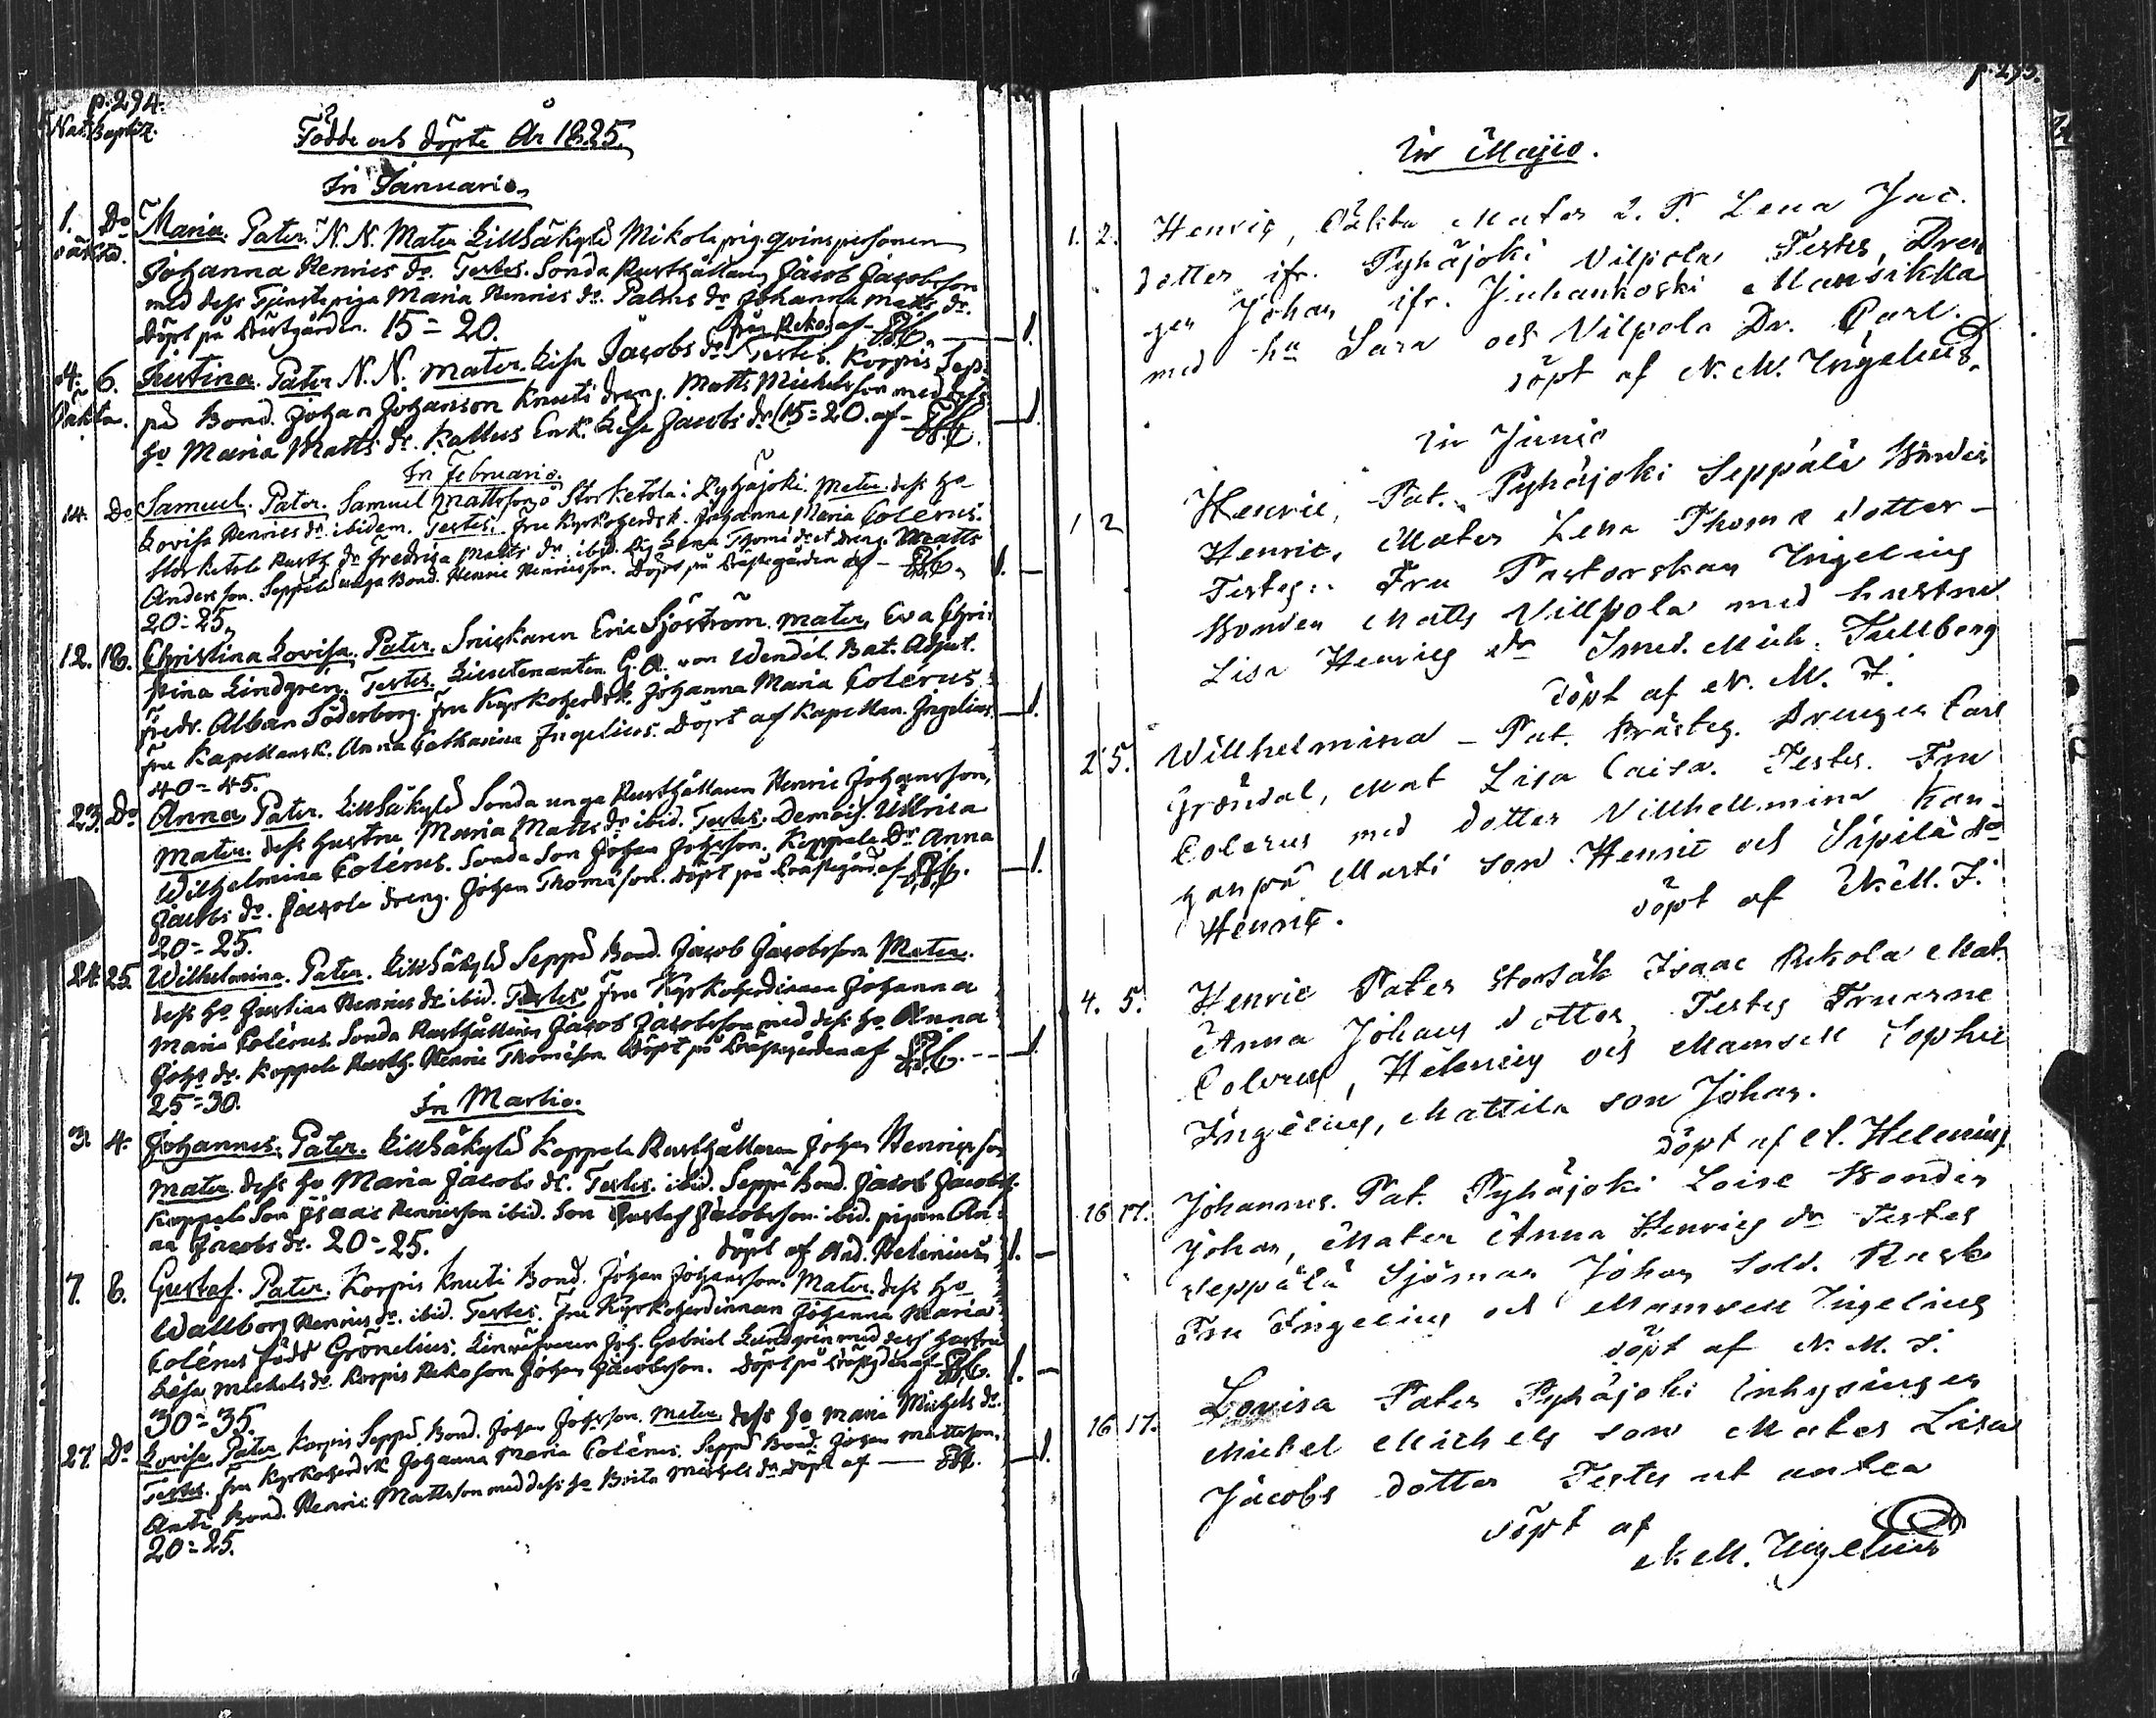 p. 294.
Nat. Baptiz.
Födde och döpte År 1825.
In Januario.
1. Do Maria. Pater. N. N. Mater Lillsäkylä Mikola pig. qvinspersonen
oäkta. Johanna Henrics dr. Testes. Sonda Rusthållaren Jacob Jacobsson
med dess Tjenstepiga Maria Henrics dr. Palms dr Johanna Matts dr.
Döpt på Prästgården. 15=20. af
4. 6. Justina. Pater N. N. Mater. Lisa Jacobs dr Testes. Korpis
Oäkta. på Bond. Johan Johanson Knuti dreng. Matts Michelsson med dess
ho Maria Matts dr. Kallus Enk. Lisa Jacobs dr (15=20. af
In Februario.
14. Do Samuel. Pater. Samuel Mattsson Storketola i Pyhäjoki. Mater. dess ho
Lovisa Henrics dr ibidem. Testes. Fru Kyrkoherdsk. Johanna Maria Colerus.
Storketola Rusth. dr Fredrica Matts dr. ibid. Pig. Lena Thomæ dr et dreng. Matts
Andersson. Seppälä unga Bond. Henric Henricsson. Döpt på Prästegården af
20=25.
12. 18. Christina Lovisa. Pater. Snickaren Eric Sjöström. Mater. Eva Chri-
stina Lindgrén. Testes. Lieutenanten G. A. von Wendel. Bat. Adjut.
Fredr. Alban Söderborg. Fru Kyrkoherdsk. Johanna Maria Colérus
Fru Kapellansk. Anna Catharina Ingelius. Döpt af Kapellan. Ingelius.
40=45.
23. Do Anna Pater. Lillsäkylä Sonda unga Rusthållaren Henric Johansson,
Mater. dess hustru Maria Matts dr ibid. Testes. Demois. Ullrica
Wilhelmina Colérus. Sonda Son Johan Johsson. Keppola Dr Anna
Jacobs dr. Jacola dreng. Johan Thomasson. Döpt på Prästegård. af
20=25.
24. 25. Wilhelmina. Pater. Lillsäkylä Seppä Bond. Jacob Jacobsson Mater.
dess ho Justina Henrics dr ibid. Testes Fru Kyrkoherdinnan Johanna
Maria Colérus. Sonda Rusthållaren Jacob Jacobsson med dess ho Anna
Johs dr. Keppola Rusth. Henric Thomasson Döpt på Prästegården af
25=30.
In Martio.
3. 4. Johannes. Pater. Lillsäkylä Keppola Rusthållaren Johan Henricsson
Mater. dess ho Maria Jacobs dr. Testes. ibid. Seppä Bond. Jacob Jacobs.
Keppola Son Isaac Henricsson ibid. Son Gustaf Jacobsson ibid. pigan An-
na Jacobs dr. 20=25. Döpt af And. Helenius
7. 8. Gustaf. Pater. Korpis Knuti Bond. Johan Johansson. Mater. dess ho
Wallborg Henrics dr. ibid. Testes. Fru Kyrkoherdinnan Johanna Maria
Colérus född Grönelius. Linväfvaren Joh. Gabriel Lundgrén med dess hustru
Lisa Michels dr. Korpis Reko son Johan Jacobsson. Döpt på Prästgården af
30=35.
27. Do Lovisa Pater. Korpis Seppä Bond. Johan Johsson. Mater. dess ho Maria Michels dr.
Testes. Fru Kyrkoherdsk Johanna Maria Colérus. Seppä Bond. Johan Mattsson.
Anti Bond. Henric Mattsson med dess ho Brita Michels dr. Döpt af
20=25.
p. 295.
In Majio.
1. 2. Henric, Oäkta Mater Q. P. Lena Jac.
dotter ifr. Pyhäjoki Vilpola Testes Dren
gen Johan ifr. Juhankoski Mansikka
med hu Sara och Vilpola Dr. Carl.
döpt af N. M. Ingelius.
In Junio
1 2 Henric, Pat. Pyhäjoki Seppälä Bonden
Henric, Mater Lena Thomæ dotter -
Testes: Fru Pastorskan Ingelius
Bonden Matts Villpola med hustru
Lisa Henrics dr Smed. Mich. Tullberg
döpt af N. M. I.
2 5. Willhelmina - Pat. Prästeg. Drengen Carl
Gröndal, Mat Lisa Caisa. Testes. Fru
Colerus med dotter Villhellmina Kan-
ganpä Marti son Henric och Sipilä Do
Henric. döpt af N. M. I.
4. 5. Henric Pater Storsäk Isaac Rekola Mat.
Anna Johans dotter, Testes Fruarne
Colerus, Helenius och Mamsell Sophie
Ingelius, Mattila son Johan.
döpt af A. Helenius
16 17. Johannes. Pat. Pyhäjoki Loise Bonden
Johan, Mater Anna Henrics dr Testes
Seppälä Sjöman Johan Sold. Rask
Fru Ingelius och Mamsell Ingelius
döpt af N. M. I.
16 17. Lovisa Pater Pyhäjoki Inhysingen
Mickel Michels son Mater Lisa
Jacobs dotter Testes ut antea
döpt af
N. M. Ingelius